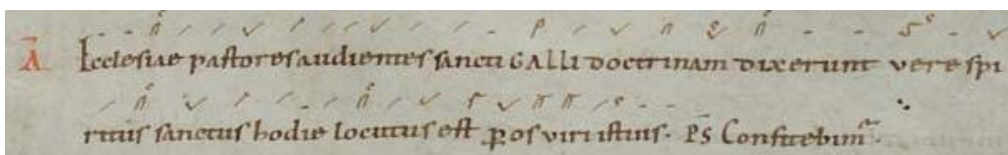 A Ecclesiae pastores audientes sancti GALLI doctrinam dixerunt vere spi
ritus sanctus hodie locutus est p os viri istius. PS Confitebim